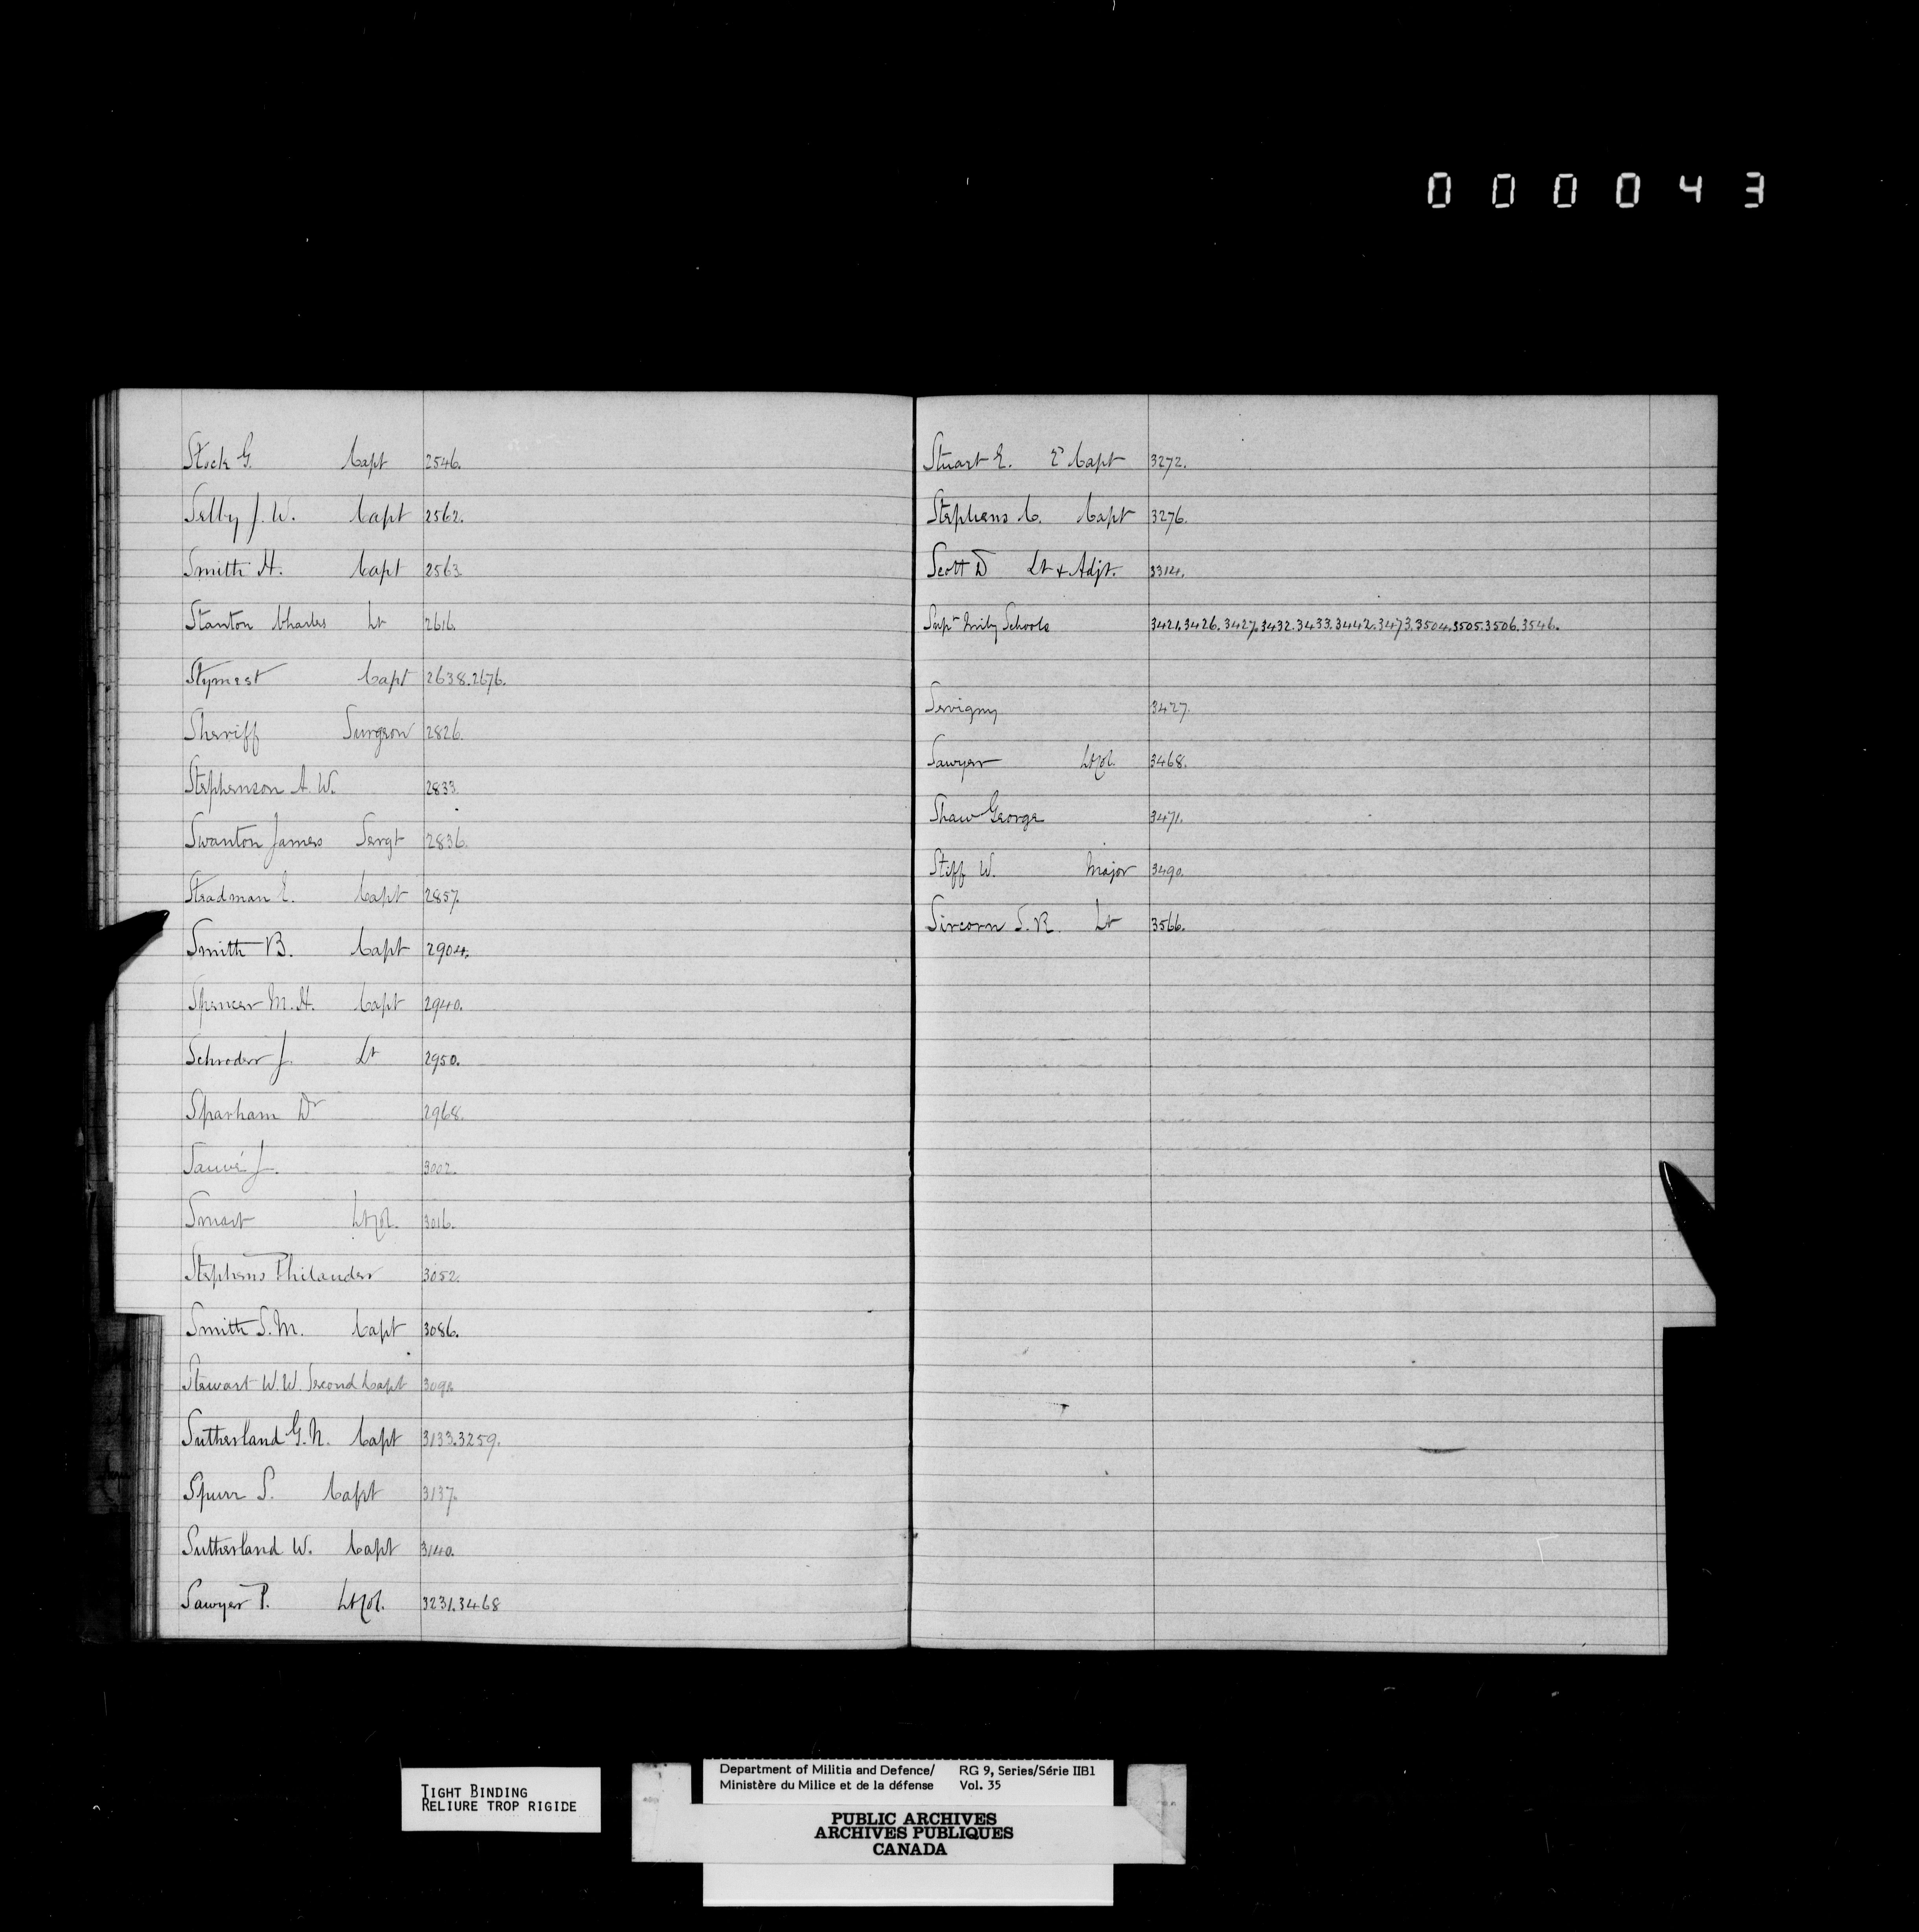 000043
Stock G. Capt 2546.
Selby J. W. Capt 2562.
Smith H. Capt 2563
Stanton Charles Lt 2616.
Stymest Capt 2638.2676.
Sheriff Surgeon 2826.
Stephenson A. W. 2833.
Swanton James Sergt 2836.
Steadman E. Capt 2857.
Smith B. Capt 2904.
Spencer M. H. Capt 2940.
Schroder J. Lt 2950.
Sparham Dr 2968.
Sauvé J. 3002.
Smart Lt Col. 3016.
Stephens Philander 3052.
Smith S. M. Capt 3086.
Stewart W. W. Second Capt
Sutherland G. N. Capt 3133.3259.
Spurr S. Capt 3137.
Sutherland W. Capt 3140.
Sawyer P. Lt Col. 3231.3468
Stuart E. Capt 3272.
Stephens C. Capt 3276.
Scott D Lt & Adjt. 3314.
Schools 3421.3426.3427.3432.3433.3442.3473.3504.3505.3506.3546.
Sevigny 3427.
Sawyer Lt Col. 3468.
Shaw George 3471.
Stiff W. Major 3490.
Sircorn S. R. Lt 3566.
TIGHT BINDING
RELIURE TROP RIGIDE
Department of Militia and Defence/ RG 9, Series/Série IIB1
Ministère du Milice et de la défense Vol. 35
PUBLIC ARCHIVES
ARCHIVES PUBLIQUES
CANADA